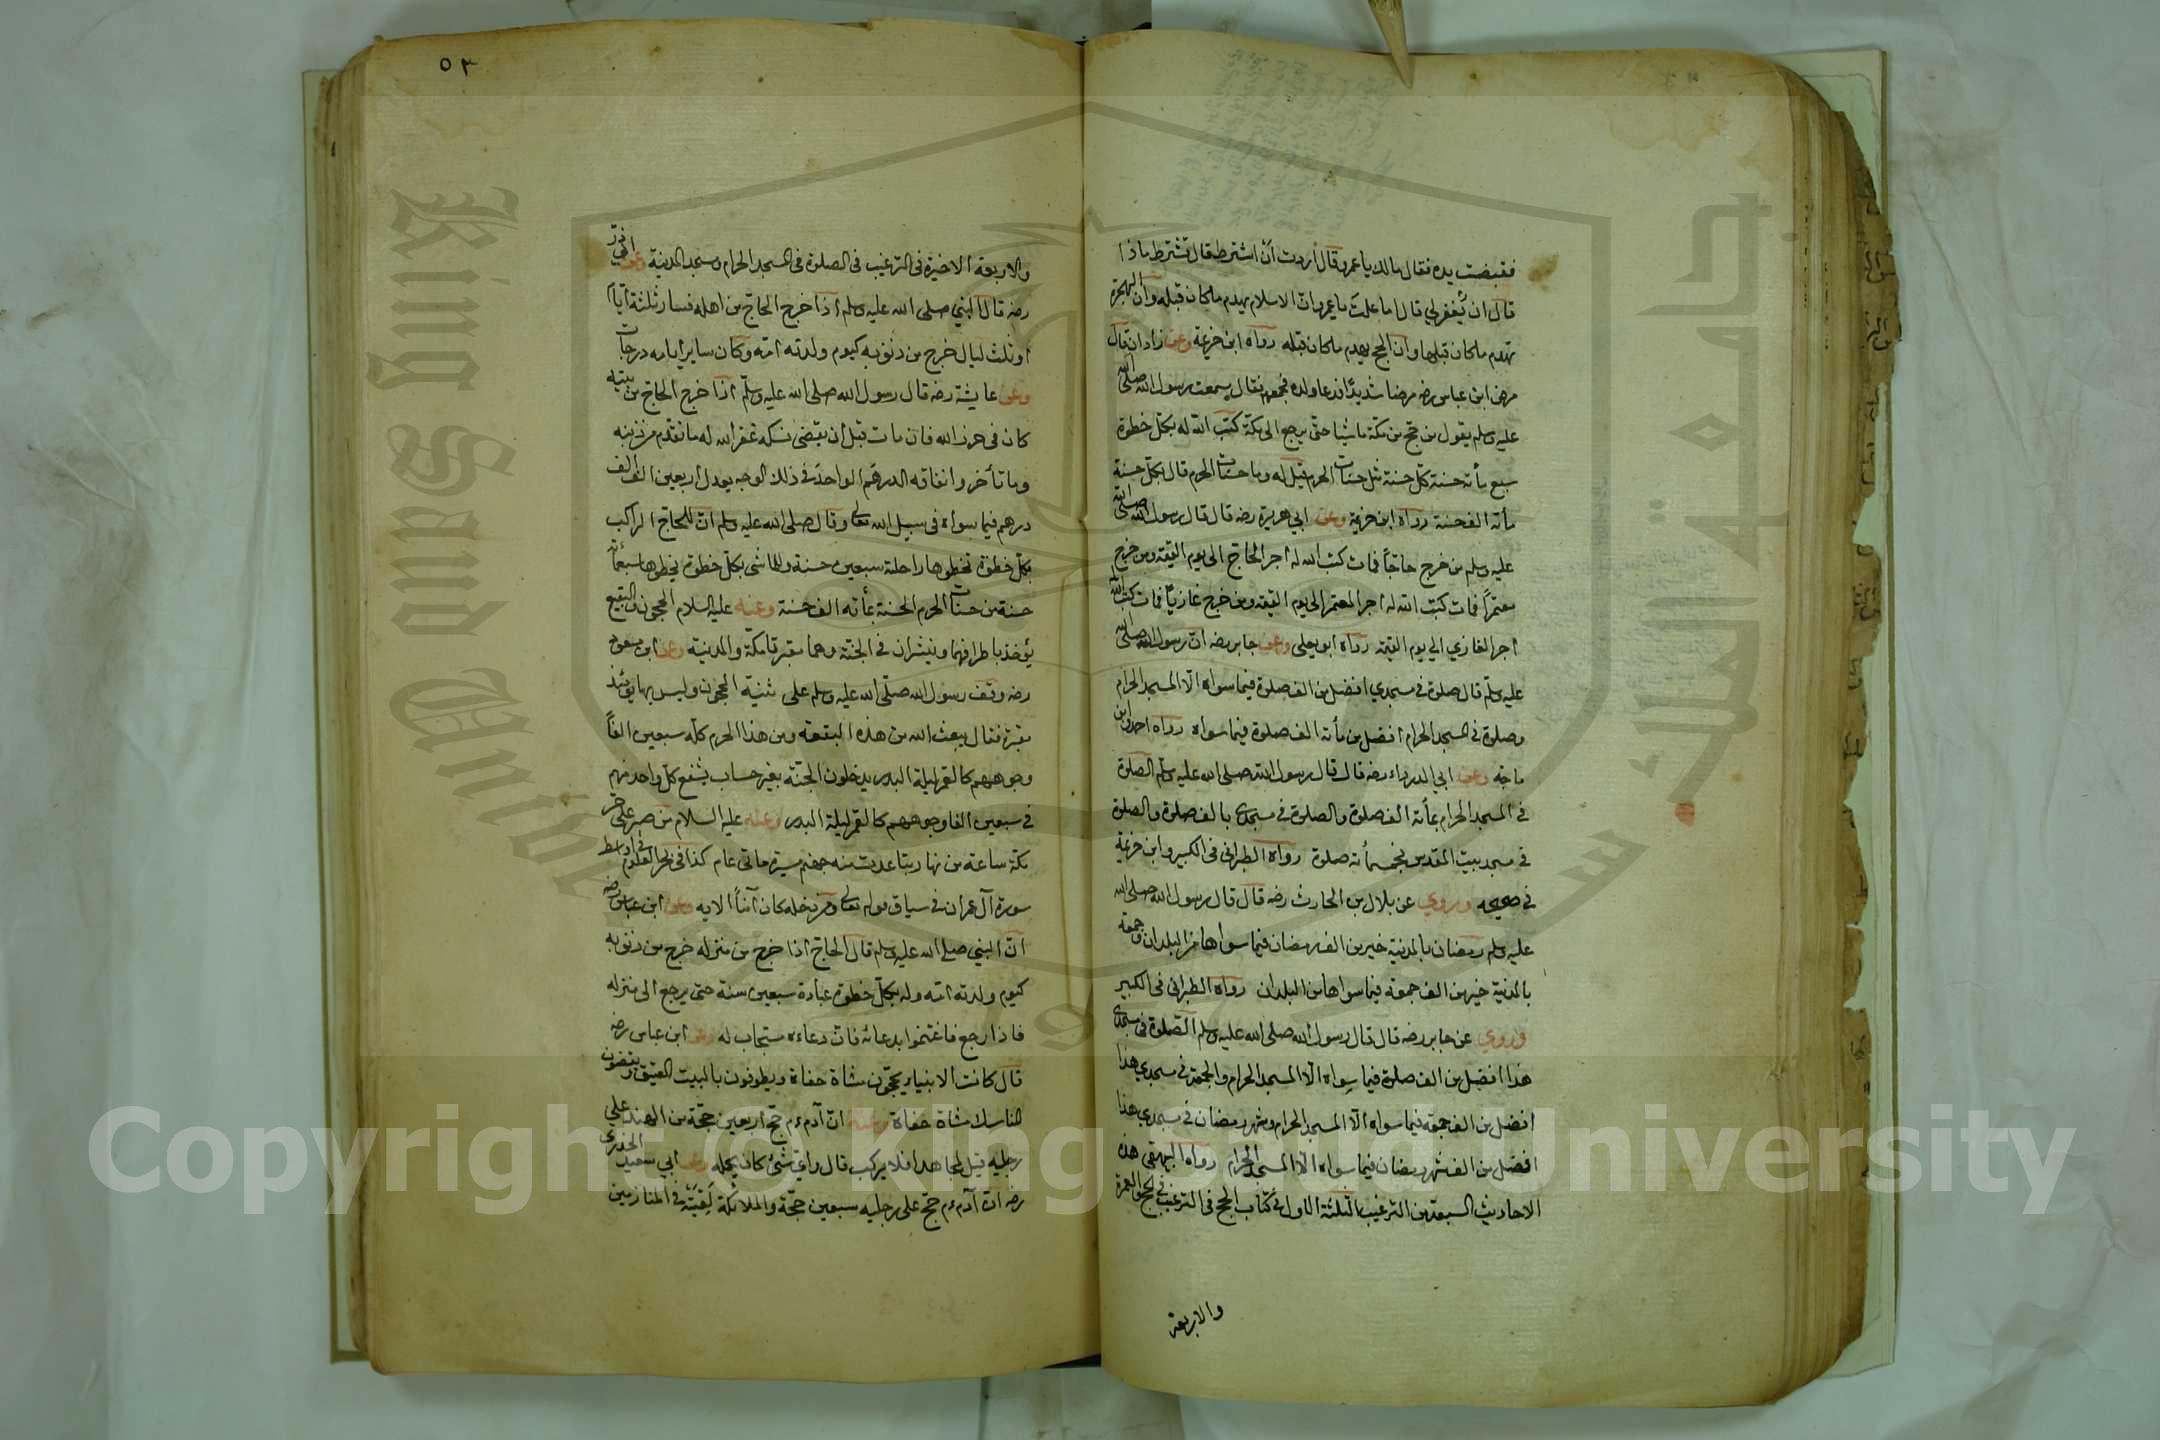 فقبضت يده فقال مالك يا عمرو قال اردت أن اشترط قال تشترط ماذا
قال ان يُغفر لي قال اما علمت يا عمرو ان الاسلام يهدم ما كان قبله وان الهجرة
تهدم ما كان قبلها وان الحج يهدم ما كان قبله رواه ابن خزيمة وعن زاذان قال
مرض ابن عباس رضه مرضا شديدًا فدعا ولده فجمعهم فقال سمعت رسول الله صلى الله
عليه وسلم يقول من حج من مكة ماشيا حتى يرجع الى مكة كتب الله له بكل خطوة
سبع مأته حسنة كل حسنة مثل حسنات الحرم قيل له وما حسنات الحرم قال بكل حسنة
مأته الف حسنة رواه ابن خزيمة وعن ابي هريرة رضه قال قال رسول الله صلى الله
عليه وسلم من خرج حاجّاً فمات كتب الله له اجر الحاج الى يوم القيمة ومن خرج
معتمرًا فمات كتب الله له اجر المعتمر الى يوم القيمة ومن خرج غازيًا فمات كتب الله
اجر الغازي الي يوم القيمة رواه ابو يعلى وعن جابر رضه ان رسول الله صلى الله
عليه وسلم قال صلوة في مسجدي افضل من الف صلوة فيما سواه الّا المسجد الحرام
وصلوة في المسجد الحرام افضل من مأته الف صلوة فيما سواه رواه احمد وابن
ماجه وعن ابي الدرداء رضه قال قال رسول الله صلى الله عليه وسلم الصلوة
في المسجد الحرام بمأته الف صلوة والصلوة في مسجدى بالف صلوة والصلوة
في مسجد بيت المقدس بخمسمأته صلوة رواه الطبراني في الكبير وابن خزيمة
في صحيحه وروي عن بلال بن الحارث رضه قال قال رسول الله صلى الله
عليه وسلم رمضان بالمدينة خير من الف رمضان فيما سواها من البلدان وجمعة
بالمدينة خير من الف جمعة فيما سواها من البلدان رواه الطبراني في الكبير
وروي عن جابر رضه قال قال رسول الله صلى الله عليه وسلم الصّلوة في مسجدى
هذا افضل من الف صلوة فيما سِواه الّا المسجد الحرام والجمعة في مسجدي هذا
افضل من الف جمعة فيما سواه الّا المسجد الحرام وشهر رمضان في مسجدي هذا
افضل من الف شهر رمضان فيما سواه الّا المسجد الحرام رواه البيهقي هذه
الاحاديث السبعة من الترغيب الثلثة الاول في كتاب الحج في الترغيب في الحج والعمرة
والاربعة
٥٣
والاربعة الاخيرة في الترغيب في الصلوة في المسجد الحرام ومسجد المدينة وعن ابي ذرّ
رضه قال النبي صلى الله عليه وسلم اذا خرج الحاج من اهله فسار ثلثة ايّام
او ثلث ليال خرج من ذنوبه كيوم ولدته امّه وكان ساير أيامه درجات
وعن عايشة رضه قال رسول الله صلى الله عليه وسلّم اذا خرج الحاج من بيته
كان في حرز الله فان مات قبل أن يقضى نسكه غفر الله له ما تقدم من ذنبه
وما تأخر وانفاقه الدرهم الواحد في ذلك الوجه يعدل اربعين الف الف
درهم فيما سواه فى سبيل الله تعالى وقال صلى الله عليه وسلم انّ للحاج الراكب
بكل خطوة تخطوها راحلته سبعين حسنة وللماشي بكل خطوة يخطوها سبعمأته
حسنة من حسنات الحرم الحسنة بمأته الف حسنة وعنه عليه السلام الحجون والبقيع
يُؤخذ باطرافهما وينثران في الجنّة وهما مقبرتا مكّة والمدينة وعن ابن مسعود
رضه وقف رسول الله صلّى الله عليه وسلم على ثنيّة الحجون وليس بها يومئذ
مقبرة فقال يبعث الله من هذه البقعة ومن هذا الحرم كلّه سبعين الفاً
وجوههم كالقمر ليلة البدر يدخلون الجنّة بغير حساب يشفع كل واحد منهم
في سبعين الفا وجوههم كالقمر ليلة البدر وعنه عليه السلام من صبر على حر
مكّة ساعة من نهار تباعدت منه جهنم مسيرة مائتي عام كذا في بحر العلوم في اواسط
سورة آل عمران في سياق قوله تعالى ومن دخله كان آمناً الايه وعن ابن عباس رضه
انّ النبي صلى الله عليه وسلم قال الحاج اذا خرج من منزله خرج من ذنوبه
كيوم ولدته امّه وله بكلّ خطوة عبادة سبعين سنة حتى يرجع الى منزله
فاذا رجع فاغتنموا بدعائه فانّ دعاءه مستجاب له وعن ابن عباس رضه
قال كانت الانبياء يحجّون مشاة حفاة ويطوفون بالبيت العتيق ويقضون
المناسك مشاة حفاة وعنه انّ آدم ءم حجّ اربعين حجّة من الهند علي
رجليه قيل لمجاهد افلا يركب قال واىّ شئ كان يحمله وعن ابي سعيد الخدرى
رضه انّ آدم ءم حجّ على رجليه سبعين حجّة والملائكة لَقِيَتْه في المأزمين
جامعة الملك سعود
King Saud University
Copyright © King Saud University